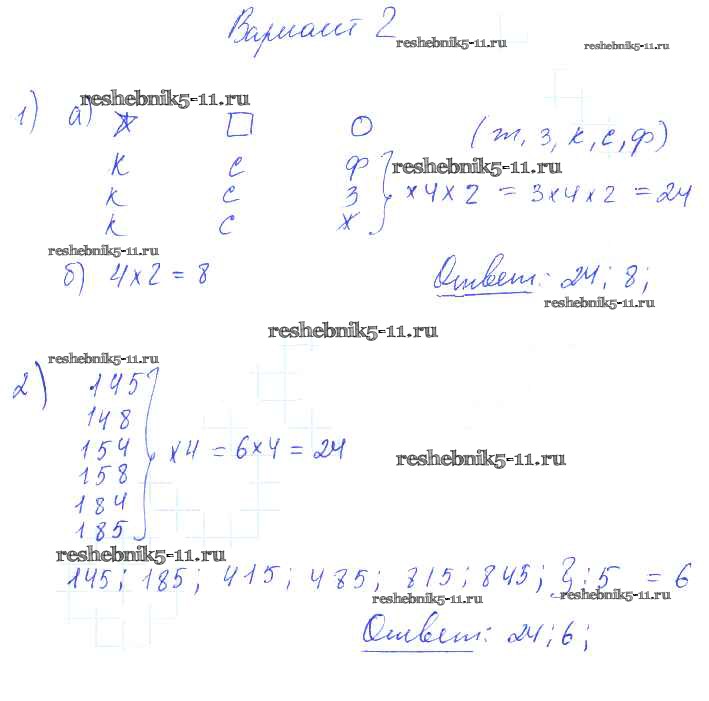 Вариант 2
reshebnik5-11.ru reshebnik5-11.ru
reshebnik5-11.ru
1) а)
(т, з, к, с, ф)
к с ф
reshebnik5-11.ru
к с з × 4 × 2 = 3 × 4 × 2 = 24
к с ж
reshebnik5-11.ru
б) 4 × 2 = 8 Ответ: 24; 8;
reshebnik5-11.ru
reshebnik5-11.ru
reshebnik5-11.ru
2) 145
148
154 × 4 = 6 × 4 = 24
reshebnik5-11.ru
158
184
185
reshebnik5-11.ru
145; 185; 415; 485; 815; 845; : 5 = 6
reshebnik5-11.ru reshebnik5-11.ru
Ответ: 24; 6;